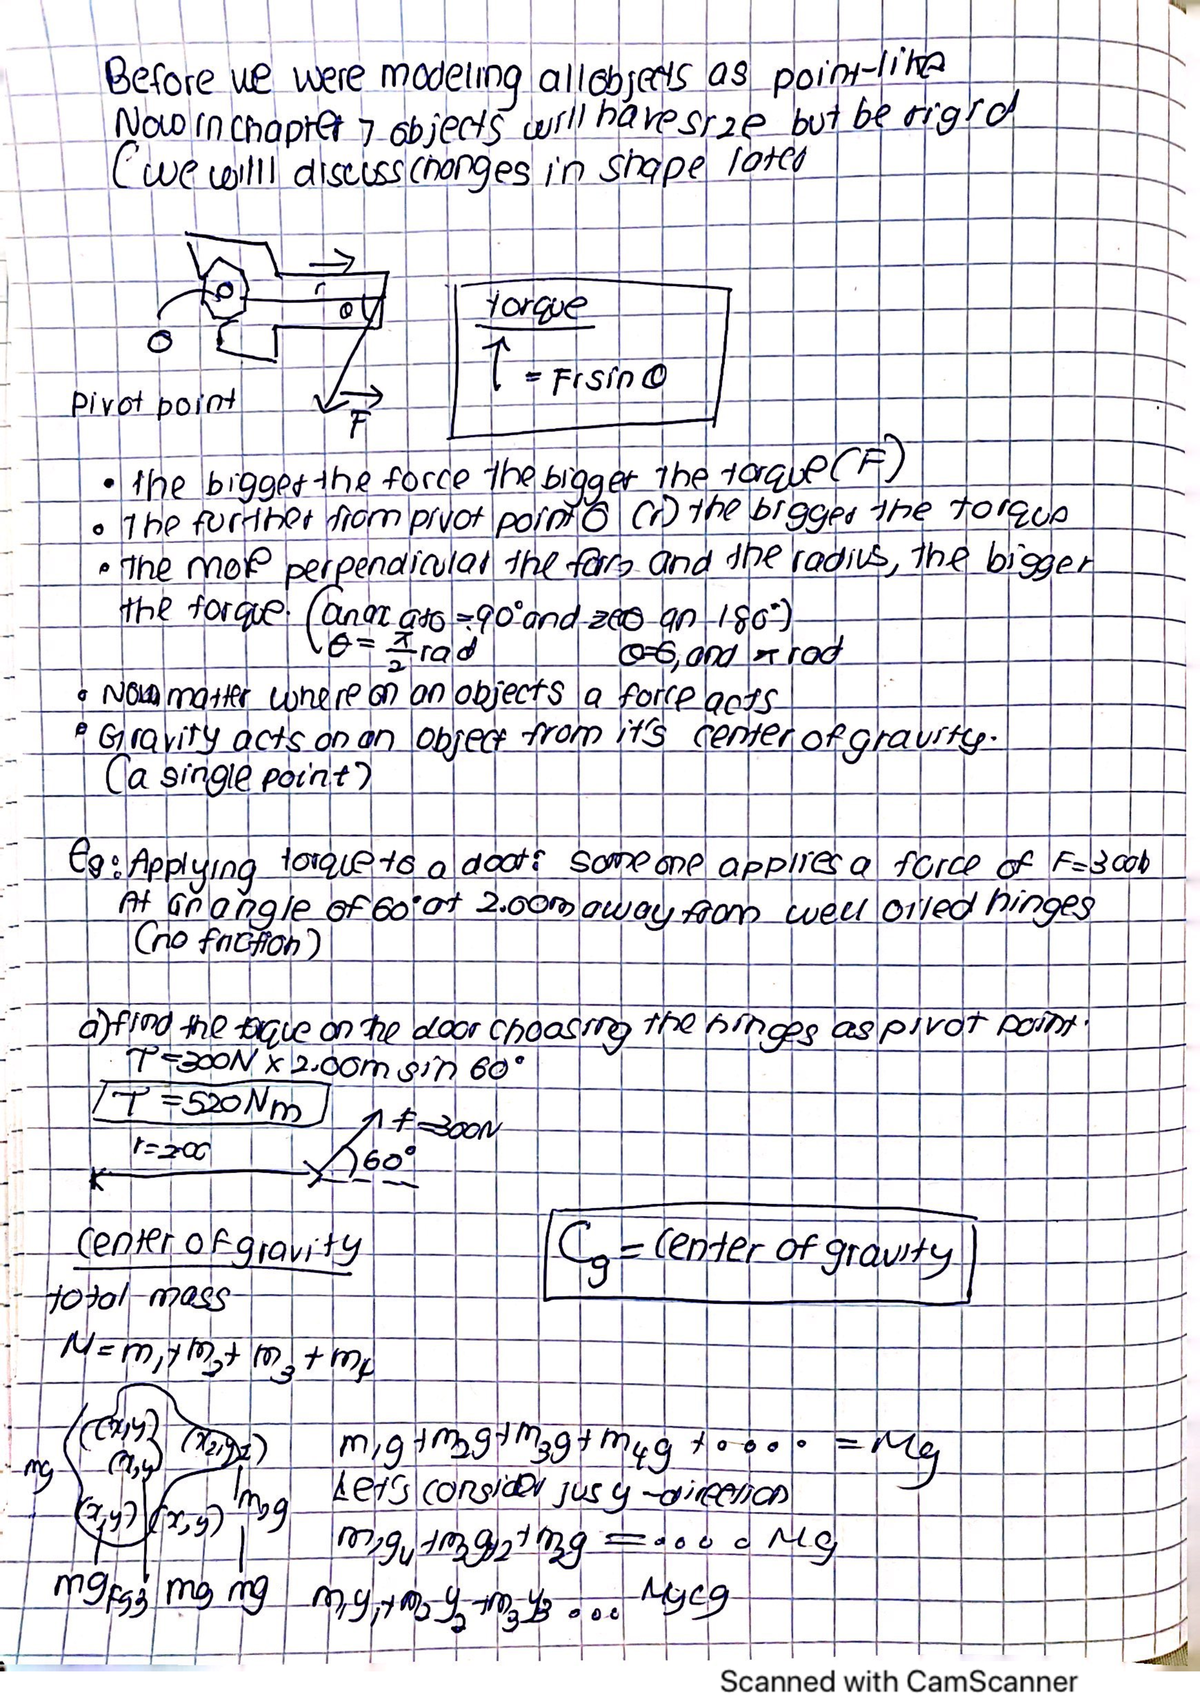 Before we were modeling all objects as point-like
Now in chapter 7 objects will have size but be rigid
(we willl discuss changes in shape later
r
θ
O
Pivot point
F
torque
τ = Frsinθ
• the bigger the force the bigger the torque (F)
• The further from pivot point O (r) the bigger the torque
• the more perpendicular the force and the radius, the bigger
the torque. (max at θ = 90° and zero an 180°)
θ = π/2 rad θ=0, and π rad
• Now matter where on an objects a force acts
• Gravity acts on an object from it's center of gravity.
(a single point)
Eg: Applying torque to a door: some one applies a force of F=300N
At an angle of 60° at 2.00m away from well oiled hinges
(no friction)
a) find the torque on the door choosing the hinges as pivot point.
T = 300N x 2.00m sin 60°
T = 520Nm
F=300N
r=200
60°
center of gravity
Cg = center of gravity
total mass
M = m1 + m2 + m3 + m4
(x,y) (x2,y2)
mg (x,y)
(x,y) (x,y) m2g
mg mg mg
m1g + m2g + m3g + m4g + .... = Mg
Let's consider jus y-direction
.... Mg
m1y1 + m2y2 + m3y3 ... Mycg
Scanned with CamScanner